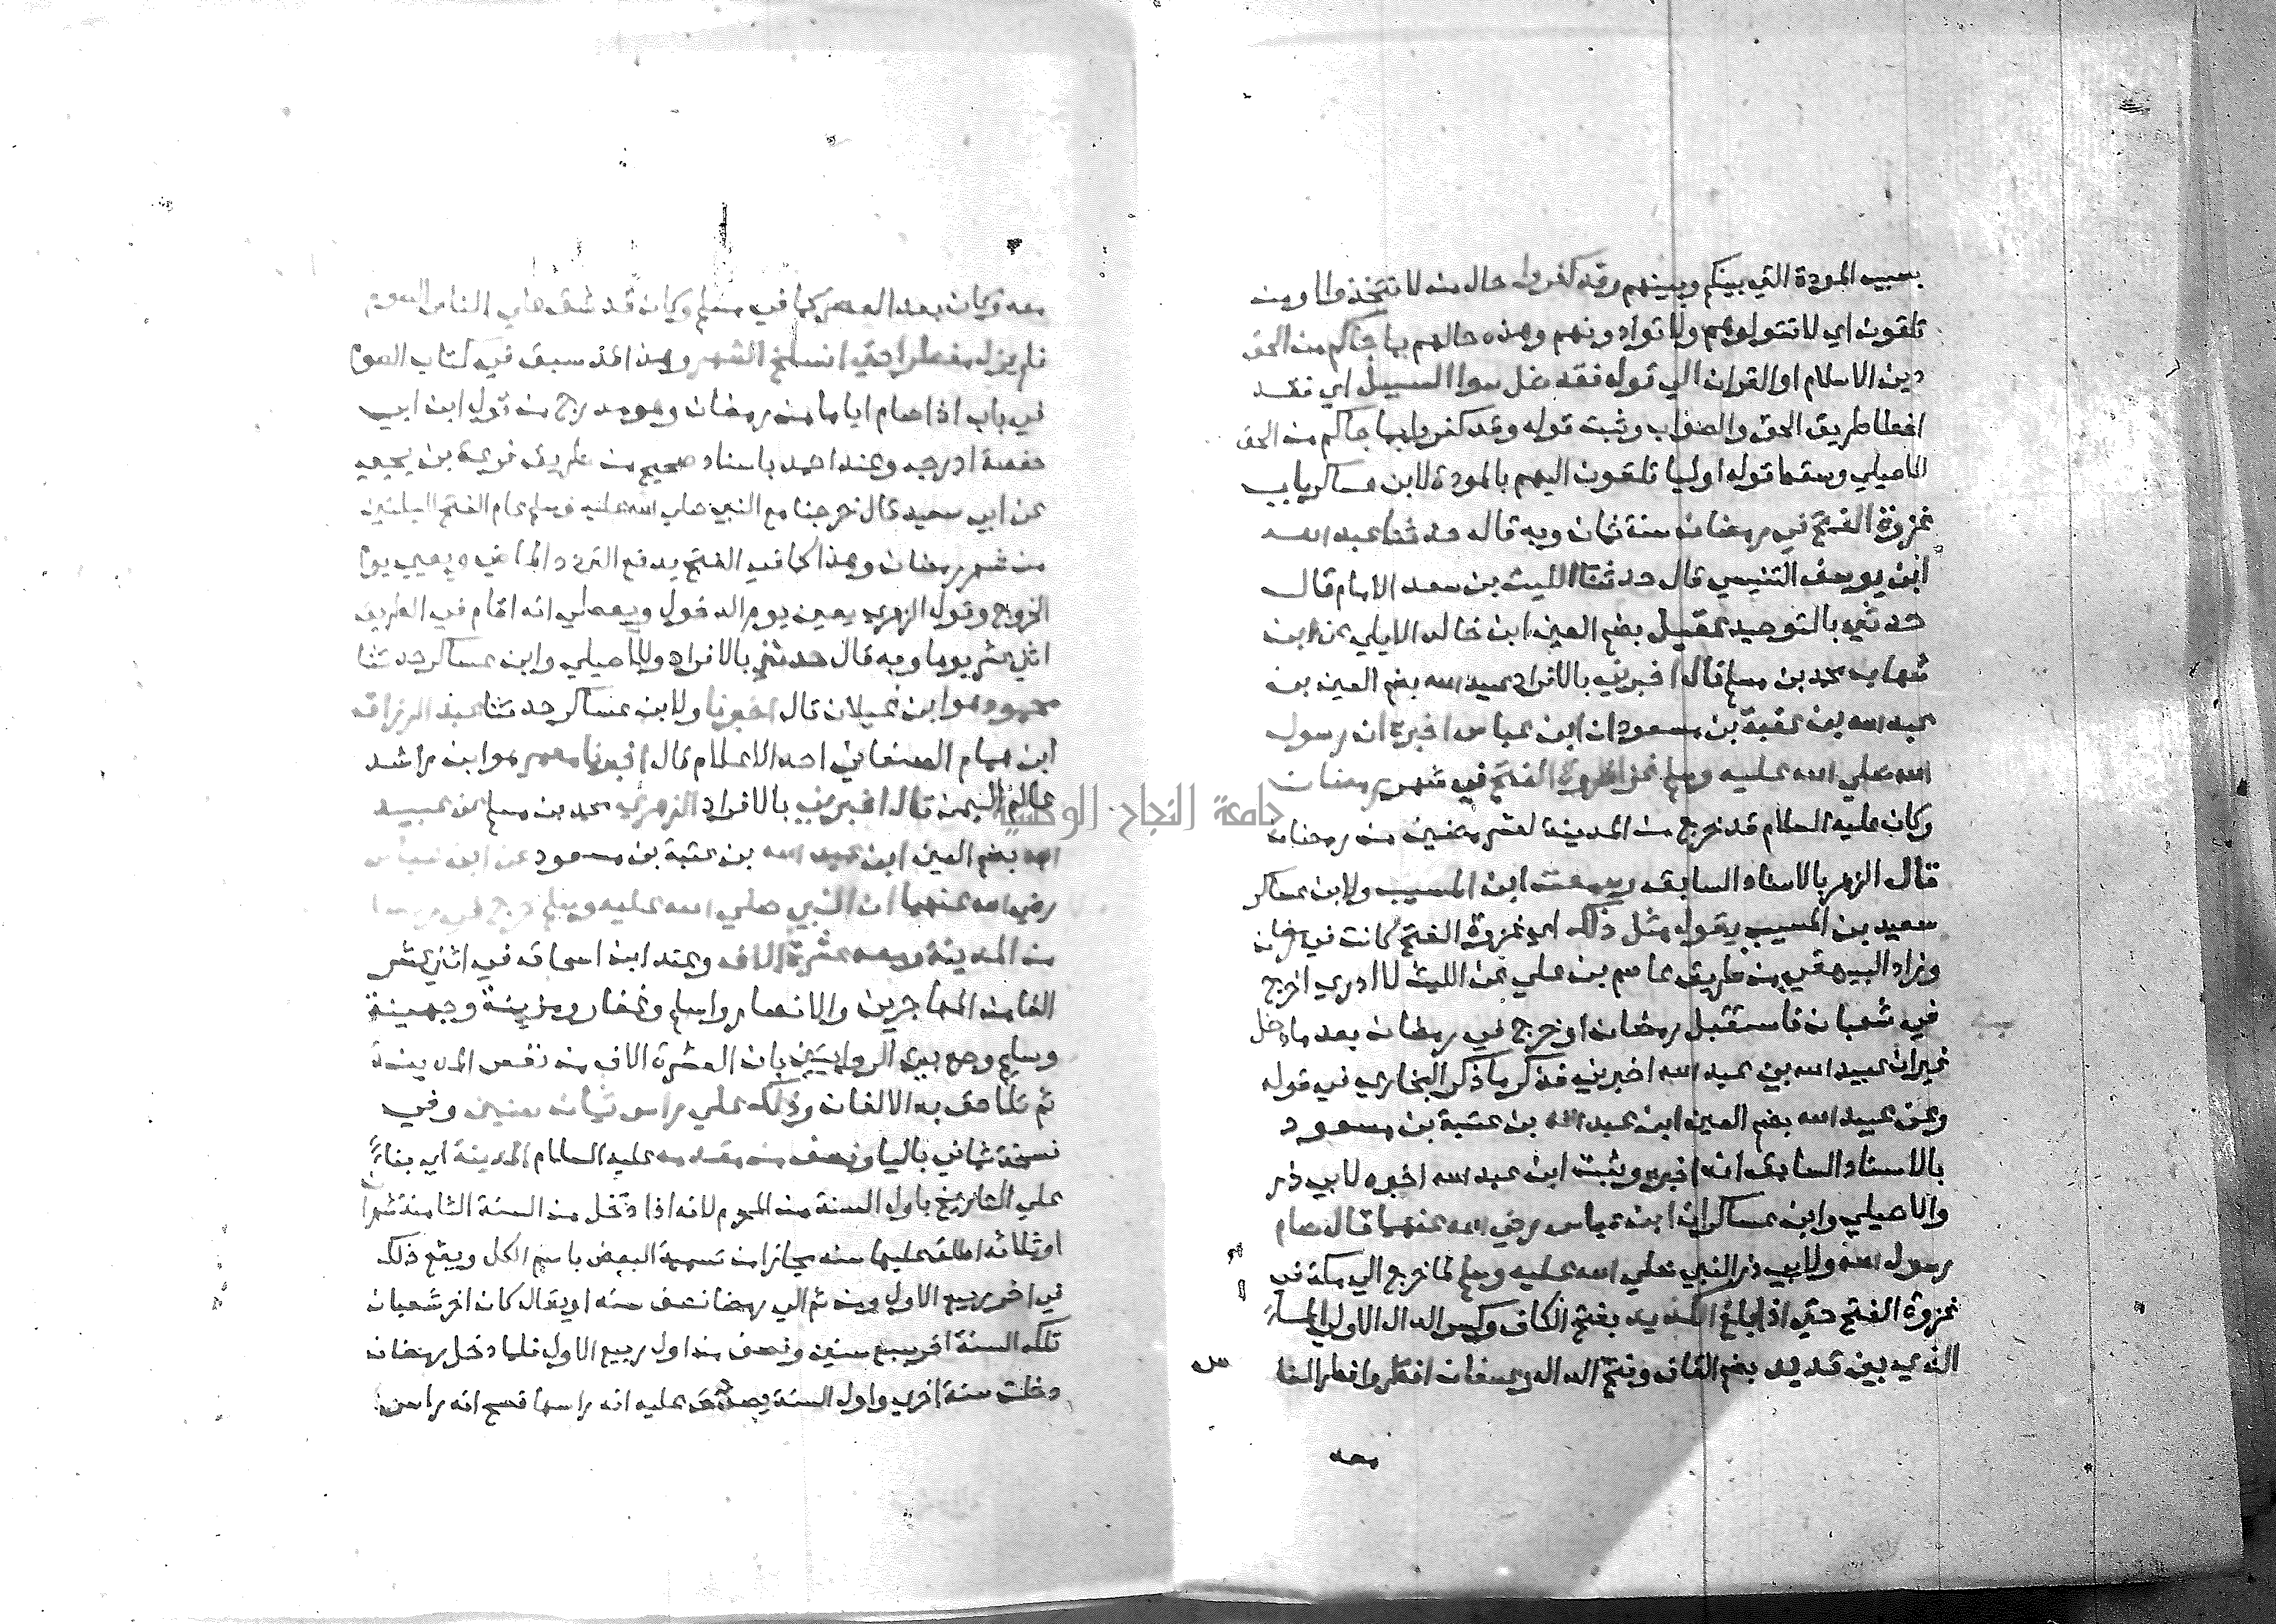 بسبب المودة التي بينكم وبينهم وقد كفروا حال من لا تتخذوا ومن
تلقون اي لا تتولوهم ولا توادونهم وهذه حالهم بما جاكم من الحق
دين الاسلام او القران الي قوله فقد ضل سوا السبيل اي فقد
اخطا طريق الحق والصواب وثبت قوله وقد كفروا بما جاكم من الحق
للاصيلي وسقط قوله اوليا تلقون اليهم بالمودة لابن عساكر باب
غزوة الفتح في رمضان سنة ثمان وبه قال حدثنا عبد الله
ابن يوسف التنيسي قال حدثنا الليث بن سعد الامام قال
حدثني بالتوحيد عقيل بضم العين ابن خالد الايلي عن ابن
شهاب محمد بن مسلم قال اخبرني بالافراد عبيد الله بضم العين بن
عبد الله بن عتبة بن مسعود ان ابن عباس اخبره ان رسول
الله صلي الله عليه وسلم غزا غزوة الفتح في شهر رمضان
وكان عليه السلام قد خرج من المدينة لعشر مضين من رمضان
قال الزهر بالاسناد السابق وسمعت ابن المسيب ولابن عساكر
سعيد بن المسيب يقول مثل ذلك اي غزوة الفتح كانت في رمضان
وزاد البيهقي من طريق عاصم بن علي عن الليث لا ادري اخرج
في شعبان فاستقبل رمضان او خرج في رمضان بعد ما دخل
غير ان عبيد الله بن عبد الله اخبرني فذكر ما ذكر البخاري في قوله
وعن عبيد الله بضم العين ابن عبد الله بن عتبة بن مسعود
بالاسناد السابق انه اخبره وثبت ابن عبد الله اخبره لابي ذر
والاصيلي وابن عساكر ان ابن عباس رضي الله عنهما قال صام
رسول الله ولابي ذر النبي صلي الله عليه وسلم لما خرج الي مكة في
غزوة الفتح حتي اذا بلغ الكديد بفتح الكاف وكسر الدال الاولي الماء
الذي بين قديد بضم القاف وفتح الدال وعسفان افطر وافطر الناس
معه
معه وكان بعد العصر كما في مسلم وكان قد شق علي الناس الصوم
فلم يزل مفطرا حتي انسلخ الشهر وهذا قد سبق في كتاب الصوم
في باب اذا صام اياما من رمضان وهو مدرج من قول ابن ابي
حفصة ادرجه وعند احمد باسناد صحيح من طريق قزعة بن يحيي
عن ابي سعيد قال خرجنا مع النبي صلي الله عليه وسلم عام الفتح لليلتين
من شهر رمضان وهذا كما في الفتح يدفع التردد الماضي ويعين يوم
الخروج وقول الزهري يعين يوم الدخول ويعطي انه اقام في الطريق
اثني عشر يوما وبه قال حدثني بالافراد وللاصيلي وابن عساكر حدثنا
محمود هو ابن غيلان قال اخبرنا ولابن عساكر حدثنا عبد الرزاق
ابن همام الصنعاني احد الاعلام قال اخبرنا معمر هو ابن راشد
عالم اليمن قال اخبرني بالافراد الزهري محمد بن مسلم عن عبيد
الله بضم العين ابن عبد الله بن عتبة بن مسعود عن ابن عباس
رضي الله عنهما ان النبي صلي الله عليه وسلم خرج في رمضان
من المدينة ومعه عشرة الاف وعند ابن اسحاق في اثني عشر
الفا من المهاجرين والانصار واسلم وغفار ومزينة وجهينة
وسليم وجمع بين الروايتين بان العشرة الاف من نفس المدينة
ثم تلاحق به الالفان وذلك علي راس ثمان سنين وفي
نسخة ثماني باليا ونصف من مقدمه عليه السلام المدينة اي بناءً
علي التاريخ باول السنة من المحرم لانه اذا دخل من السنة الثامنة شهران
او ثلاثه اطلق عليها سنه مجازا من تسمية البعض باسم الكل ويقع ذلك
في اخر ربيع الاول ومن ثم الي رمضان نصف سنه او يقال كان اخر شعبان
تلك السنة اخر سبع سنين ونصف من اول ربيع الاول فلما دخل رمضان
دخلت سنة اخري واول السنة يصدق عليه انه راسها فصح انه راس